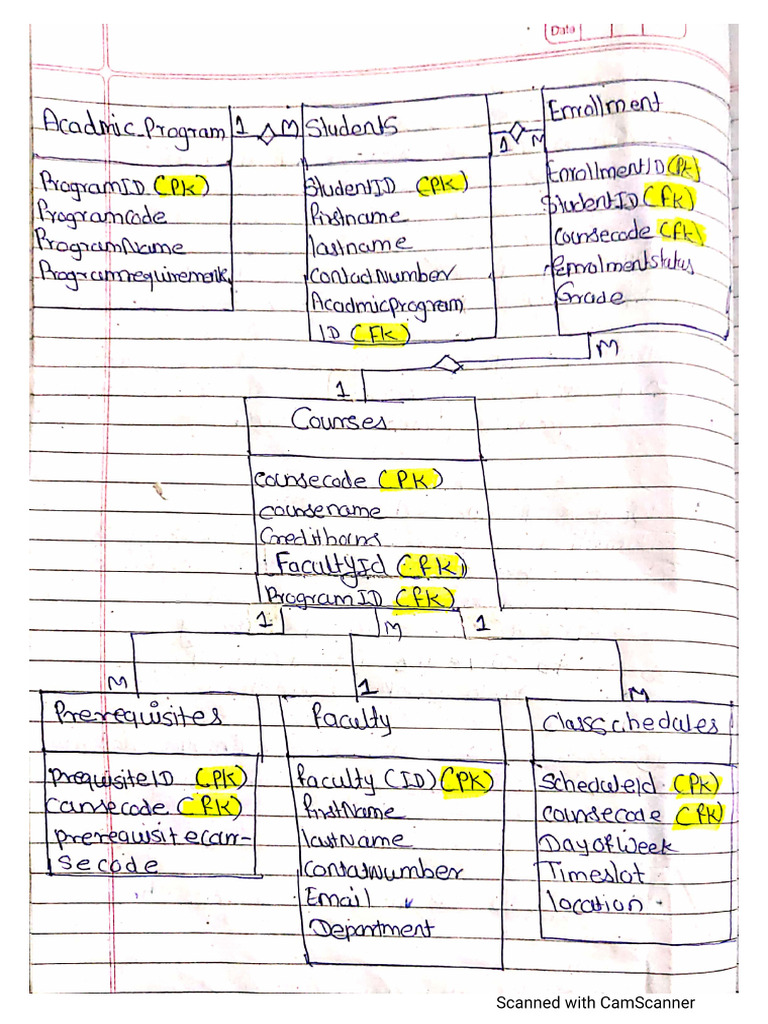 Data
Acadmic Program 1 M Students 1 M Enrollment
ProgramID (PK)
Programcode
ProgramName
Programrequirement
StudentID (PK)
firstname
lastname
ContactNumber
Acadmicprogram
ID (FK)
EnrollmentID (PK)
StudentID (fK)
Coursecode (fk)
Enrolmentstatus
Grade
M
1
Courses
Coursecode (PK)
coursename
Credithours
FacultyId (fK)
ProgramID (fK)
1 M 1
M 1 M
Prerequisites
PrequisiteID (PK)
Coursecode (fK)
prerequisitecour-
secode
faculty
faculty (ID) (PK)
firstName
lastName
Contatnumber
Email
Department
ClassSchedules
ScheduleId (PK)
Coursecode (fK)
DayofWeek
Timeslot
location
Scanned with CamScanner